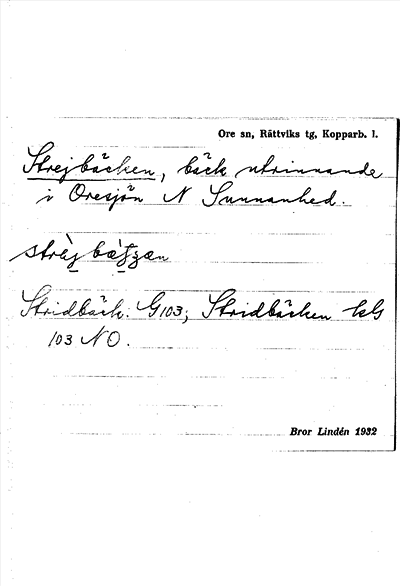 Ore sn, Rättviks tg, Kopparb. l.
Strejbäcken, bäck utrinnande
i Oresjön N Sunnanhed.
Stridbäck. G103; Stridbäcken kG
103 NO.
Bror Lindén 1932